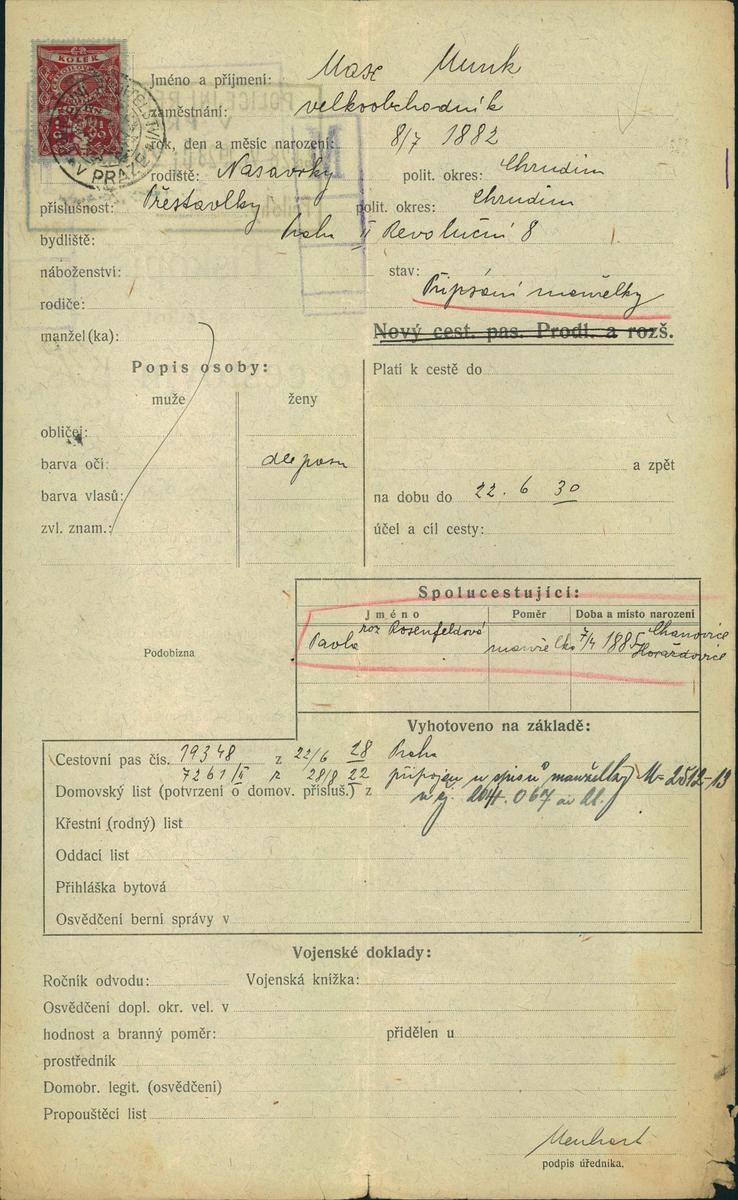 KOLEK
V PRAZE
Jméno a příjmení: Max Munk
zaměstnání: velkoobchodník
rok, den a měsíc narození: 8/7 1882
rodiště: Nasavrky polit. okres: Chrudim
příslušnost: Přestavlky polit. okres: Chrudim
bydliště: Praha II Revoluční 8
náboženství: stav:
Připsání manželky
rodiče:
manžel(ka): Nový cest. pas. Prodl. a rozš.
Popis osoby: Platí k cestě do
muže ženy
obličej:
barva očí: dle pasu a zpět
barva vlasů: na dobu do 22. 6 30
zvl. znam.: účel a cíl cesty:
Spolucestující:
Jméno Poměr Doba a místo narození
Pavla roz Rosenfeldová manželka 7/4 1885 Chanovice
Horažďovice
Podobizna
Vyhotoveno na základě:
Cestovní pas čís. 19348 z 22/6 28 Praha
7261/II z 28/8 22 připojen u spisů manželky M-2512-13
Domovský list (potvrzení o domov. přísluš.) z
Křestní (rodný) list
Oddací list
Přihláška bytová
Osvědčení berní správy v
Vojenské doklady:
Ročník odvodu: Vojenská knížka:
Osvědčení dopl. okr. vel. v
hodnost a branný poměr: přidělen u
prostředník
Domobr. legit. (osvědčení)
Propouštěcí list
podpis úředníka.